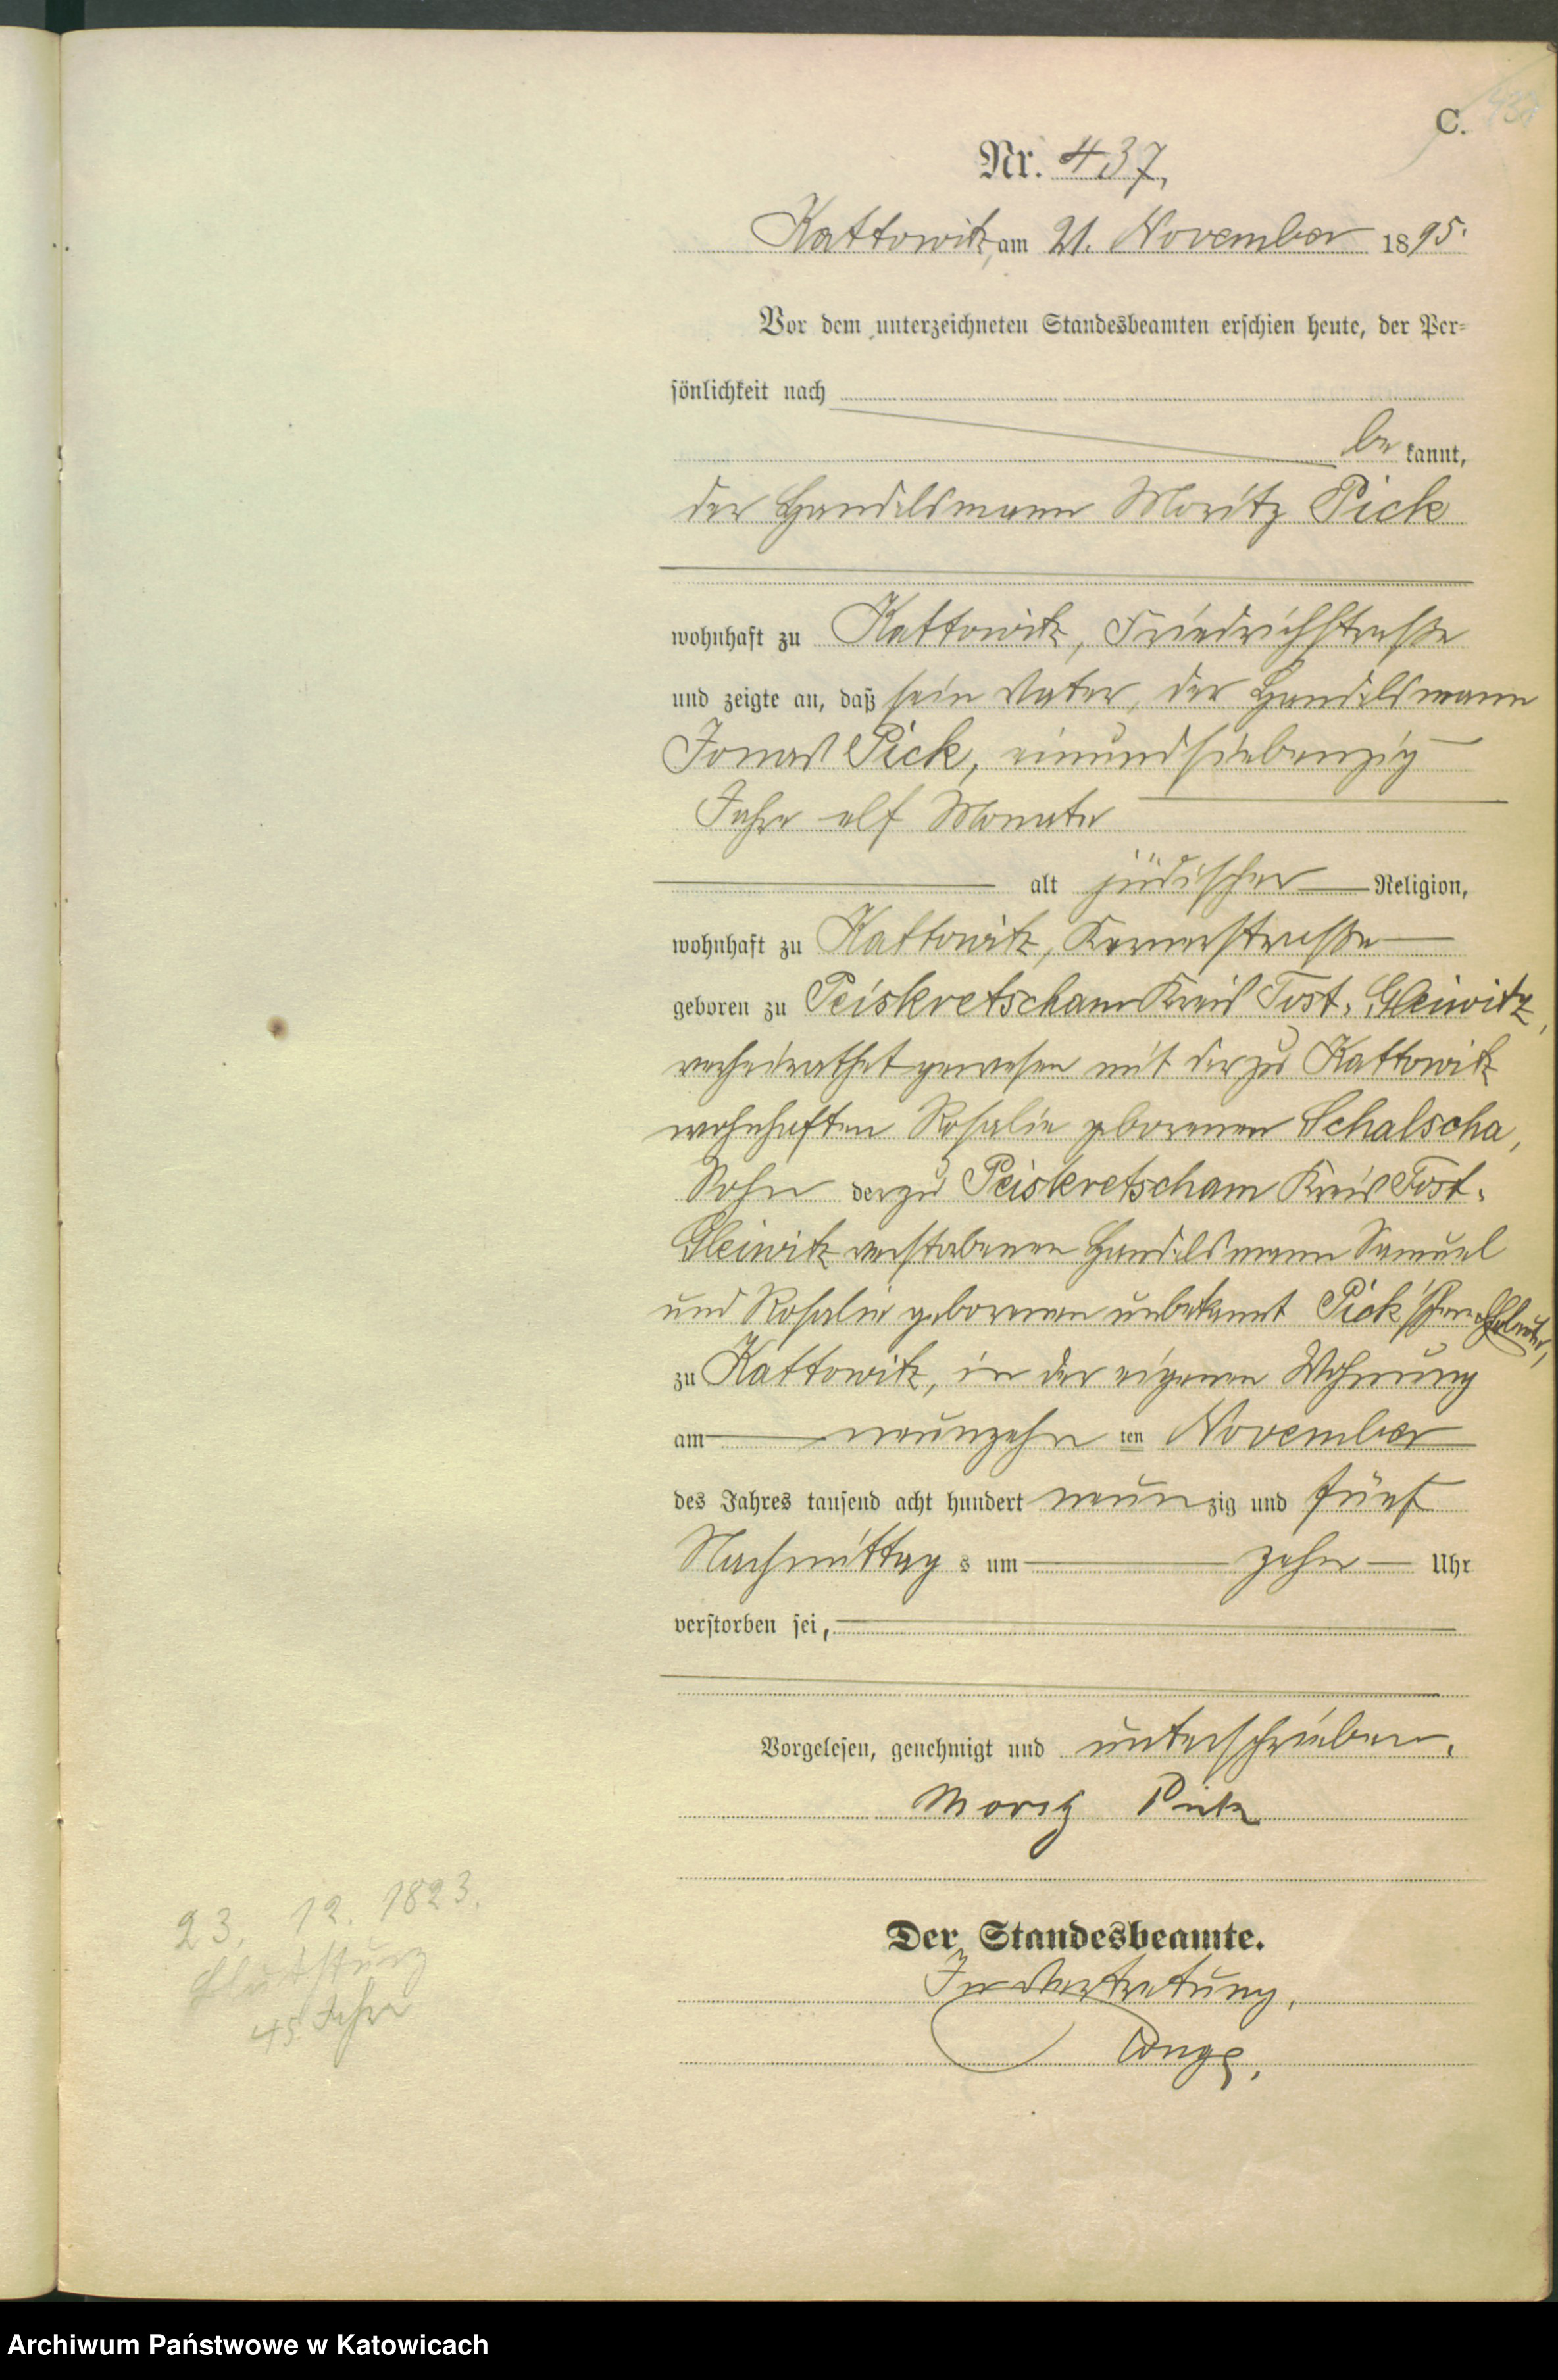 C.
Nr. 437,
Kattowitz, am 21. November 1895.
Vor dem unterzeichneten Standesbeamten erschien heute, der Per-
sönlichkeit nach
be kannt,
der Handelsmann Moritz Pick
wohnhaft zu Kattowitz, Friedrichstraße
und zeigte an, daß sein Vater, der Handelsmann
Jonas Pick, einundsiebenzig
Jahre elf Monate
alt jüdischer Religion,
wohnhaft zu Kattowitz, straße
geboren zu Peiskretscham Kreis Tost-Gleiwitz,
verheirathet gewesen mit der zu Kattowitz
wohnhaften Rosalie geborenen Schalscha,
Sohn der zu Peiskretscham Kreis Tost-
Gleiwitz verstorbenen Handelsmann Samuel
und Rosalie geborenen unbekannt Pick'schen Eheleute,
zu Kattowitz, in der eigenen Wohnung
am neunzehn ten November
des Jahres tausend acht hundert neun zig und fünf
Nachmittag s um zehn Uhr
verstorben sei,
Vorgelesen, genehmigt und unterschrieben.
Moritz Pick
23. 12. 1823.
Blutsturz
45 Jahre
Der Standesbeamte.
In Vertretung.
Archiwum Państwowe w Katowicach